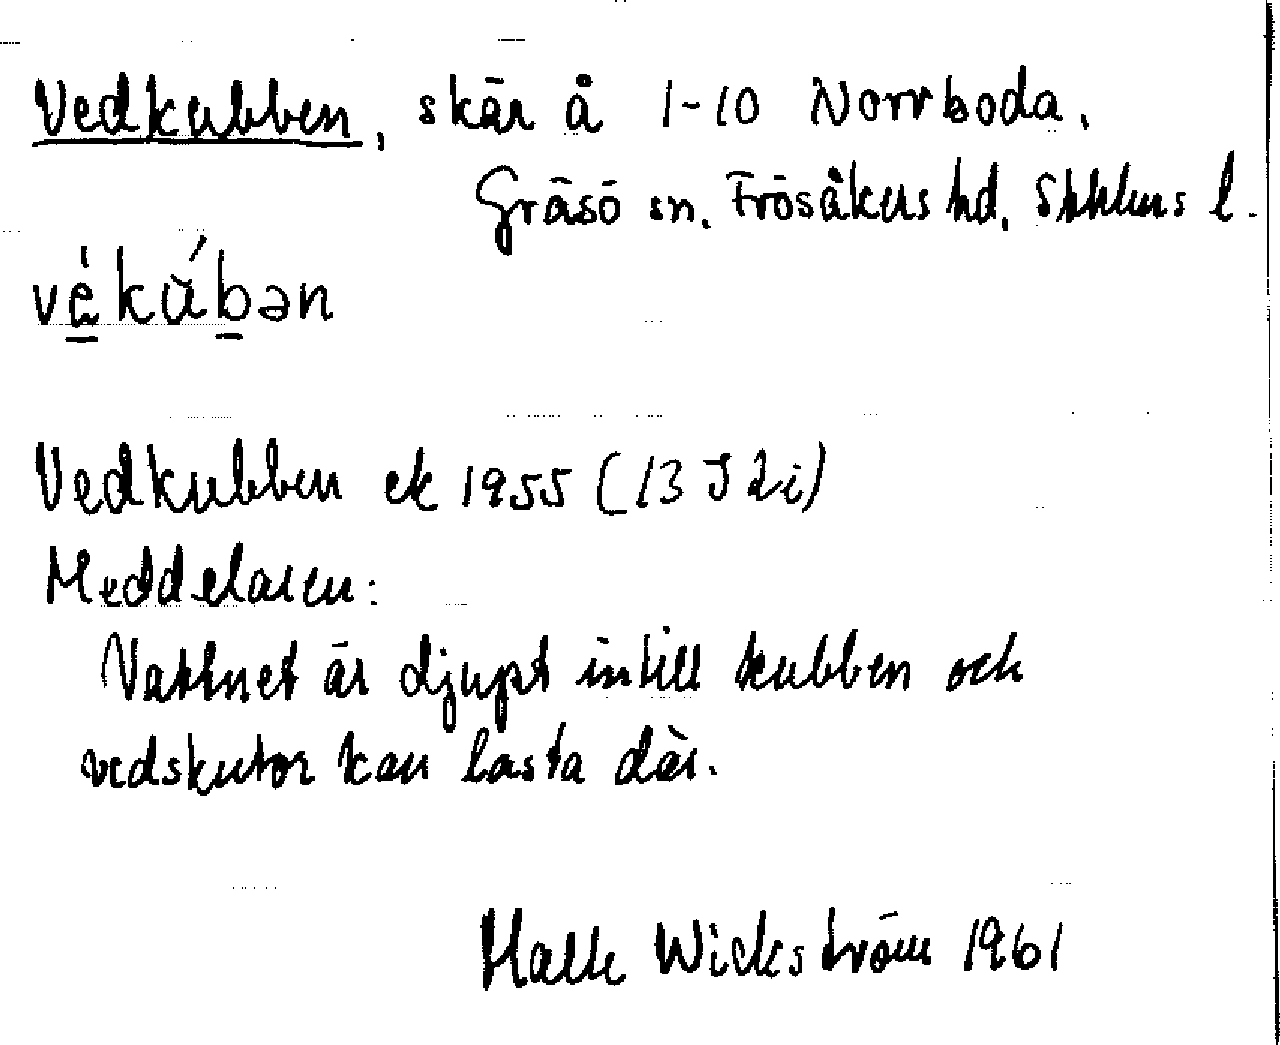 Vedkubben, skär å 1-10 Norrboda.
Gräsö sn. Frösåkers hd. Sthlms l.
vè̱kǘḇən
Vedkubben ek 1955 (13 I 2i)
Meddelaren:
Vattnet är djupt intill kubben och
vedskutor kan lasta där.
Malte Wickström 1961